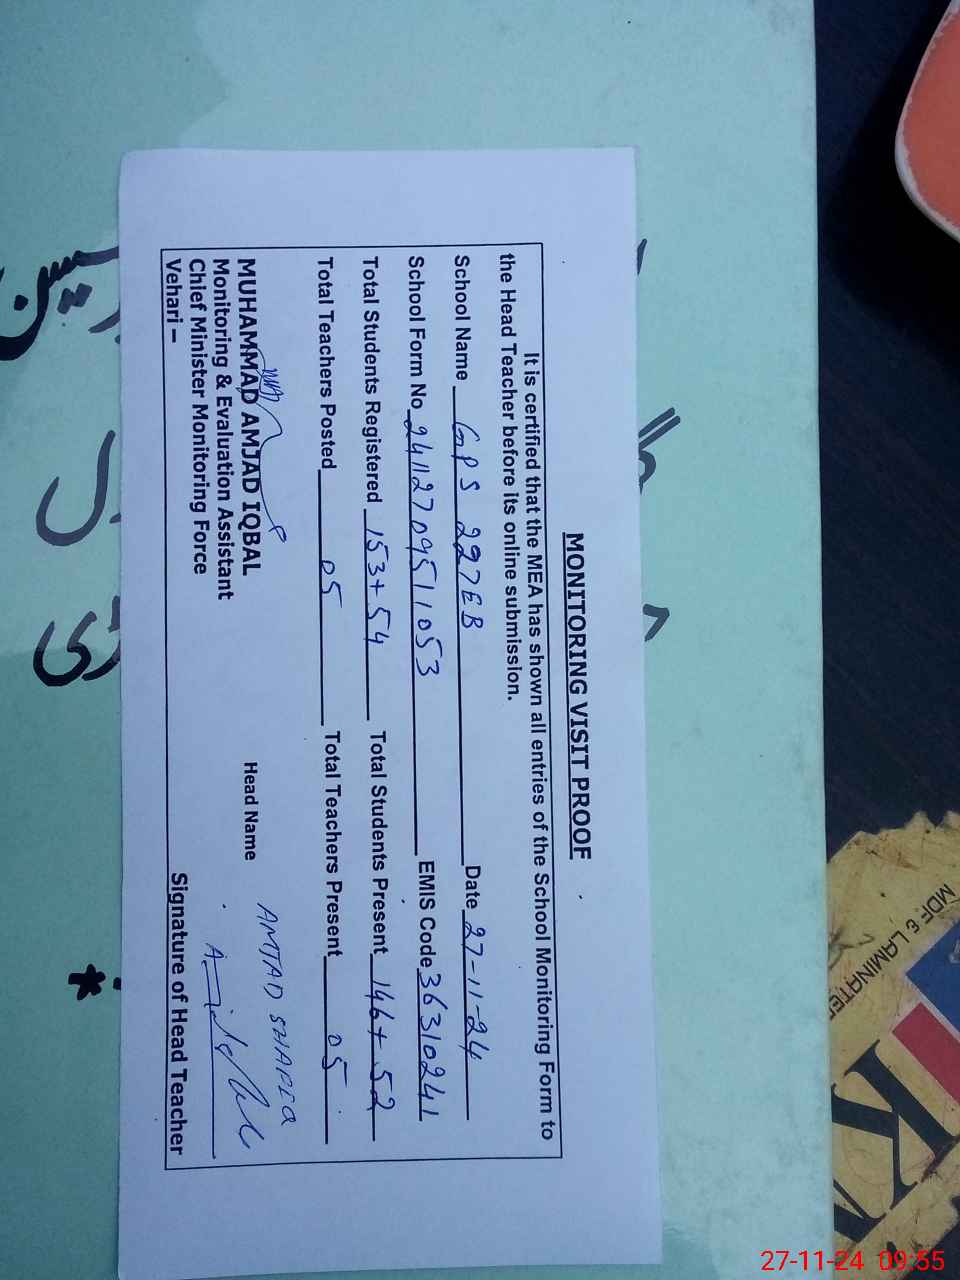 MONITORING VISIT PROOF
It is certified that the MEA has shown all entries of the School Monitoring Form to
the Head Teacher before its online submission.
School Name GPS 227EB Date 27-11-24
School Form No 24112709511053 EMIS Code 36310241
Total Students Registered 153+54 Total Students Present 146+52
Total Teachers Posted 05 Total Teachers Present 05
MUHAMMAD AMJAD IQBAL
Monitoring & Evaluation Assistant
Chief Minister Monitoring Force
Vehari –
Head Name AMJAD SHAFIQ
Signature of Head Teacher
MDF & LAMINATE
27-11-24 09:55